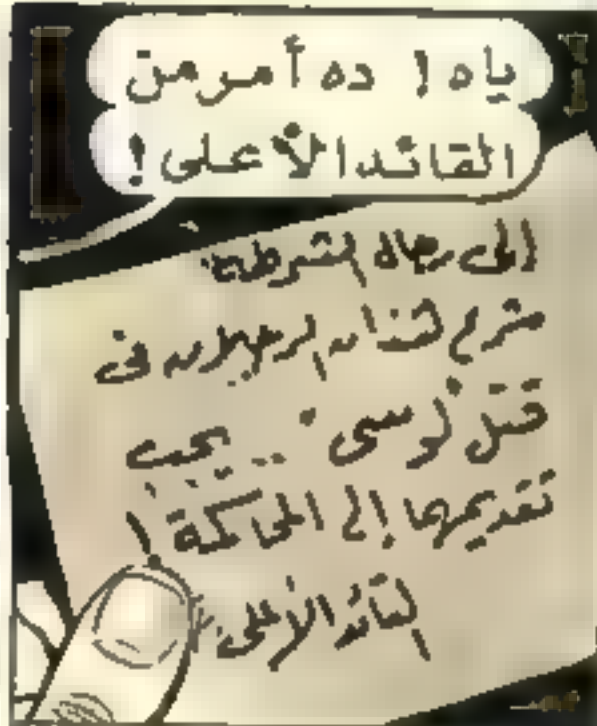 ياه! ده أمر من
القائد الأعلى!
إلى رجال الشرطة:
شرع هذان الرجلان فى
قتل "لوسى" .. يجب
تقديمهما إلى المحاكمة!
القائد الأعلى